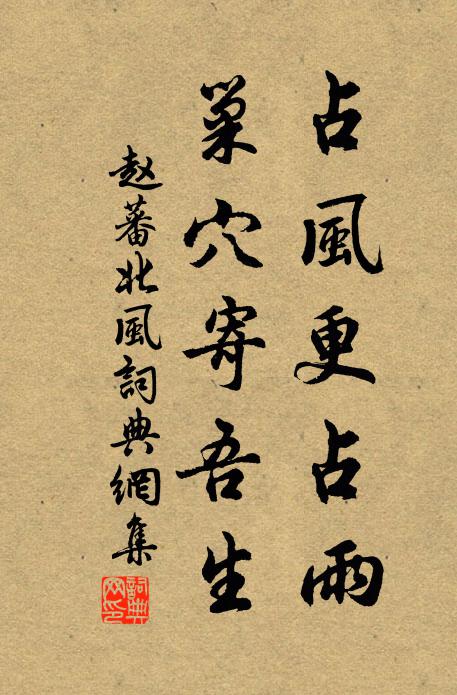 占風更占雨
巢穴寄吾生
赵蕃北風詞典網集
詞典網印